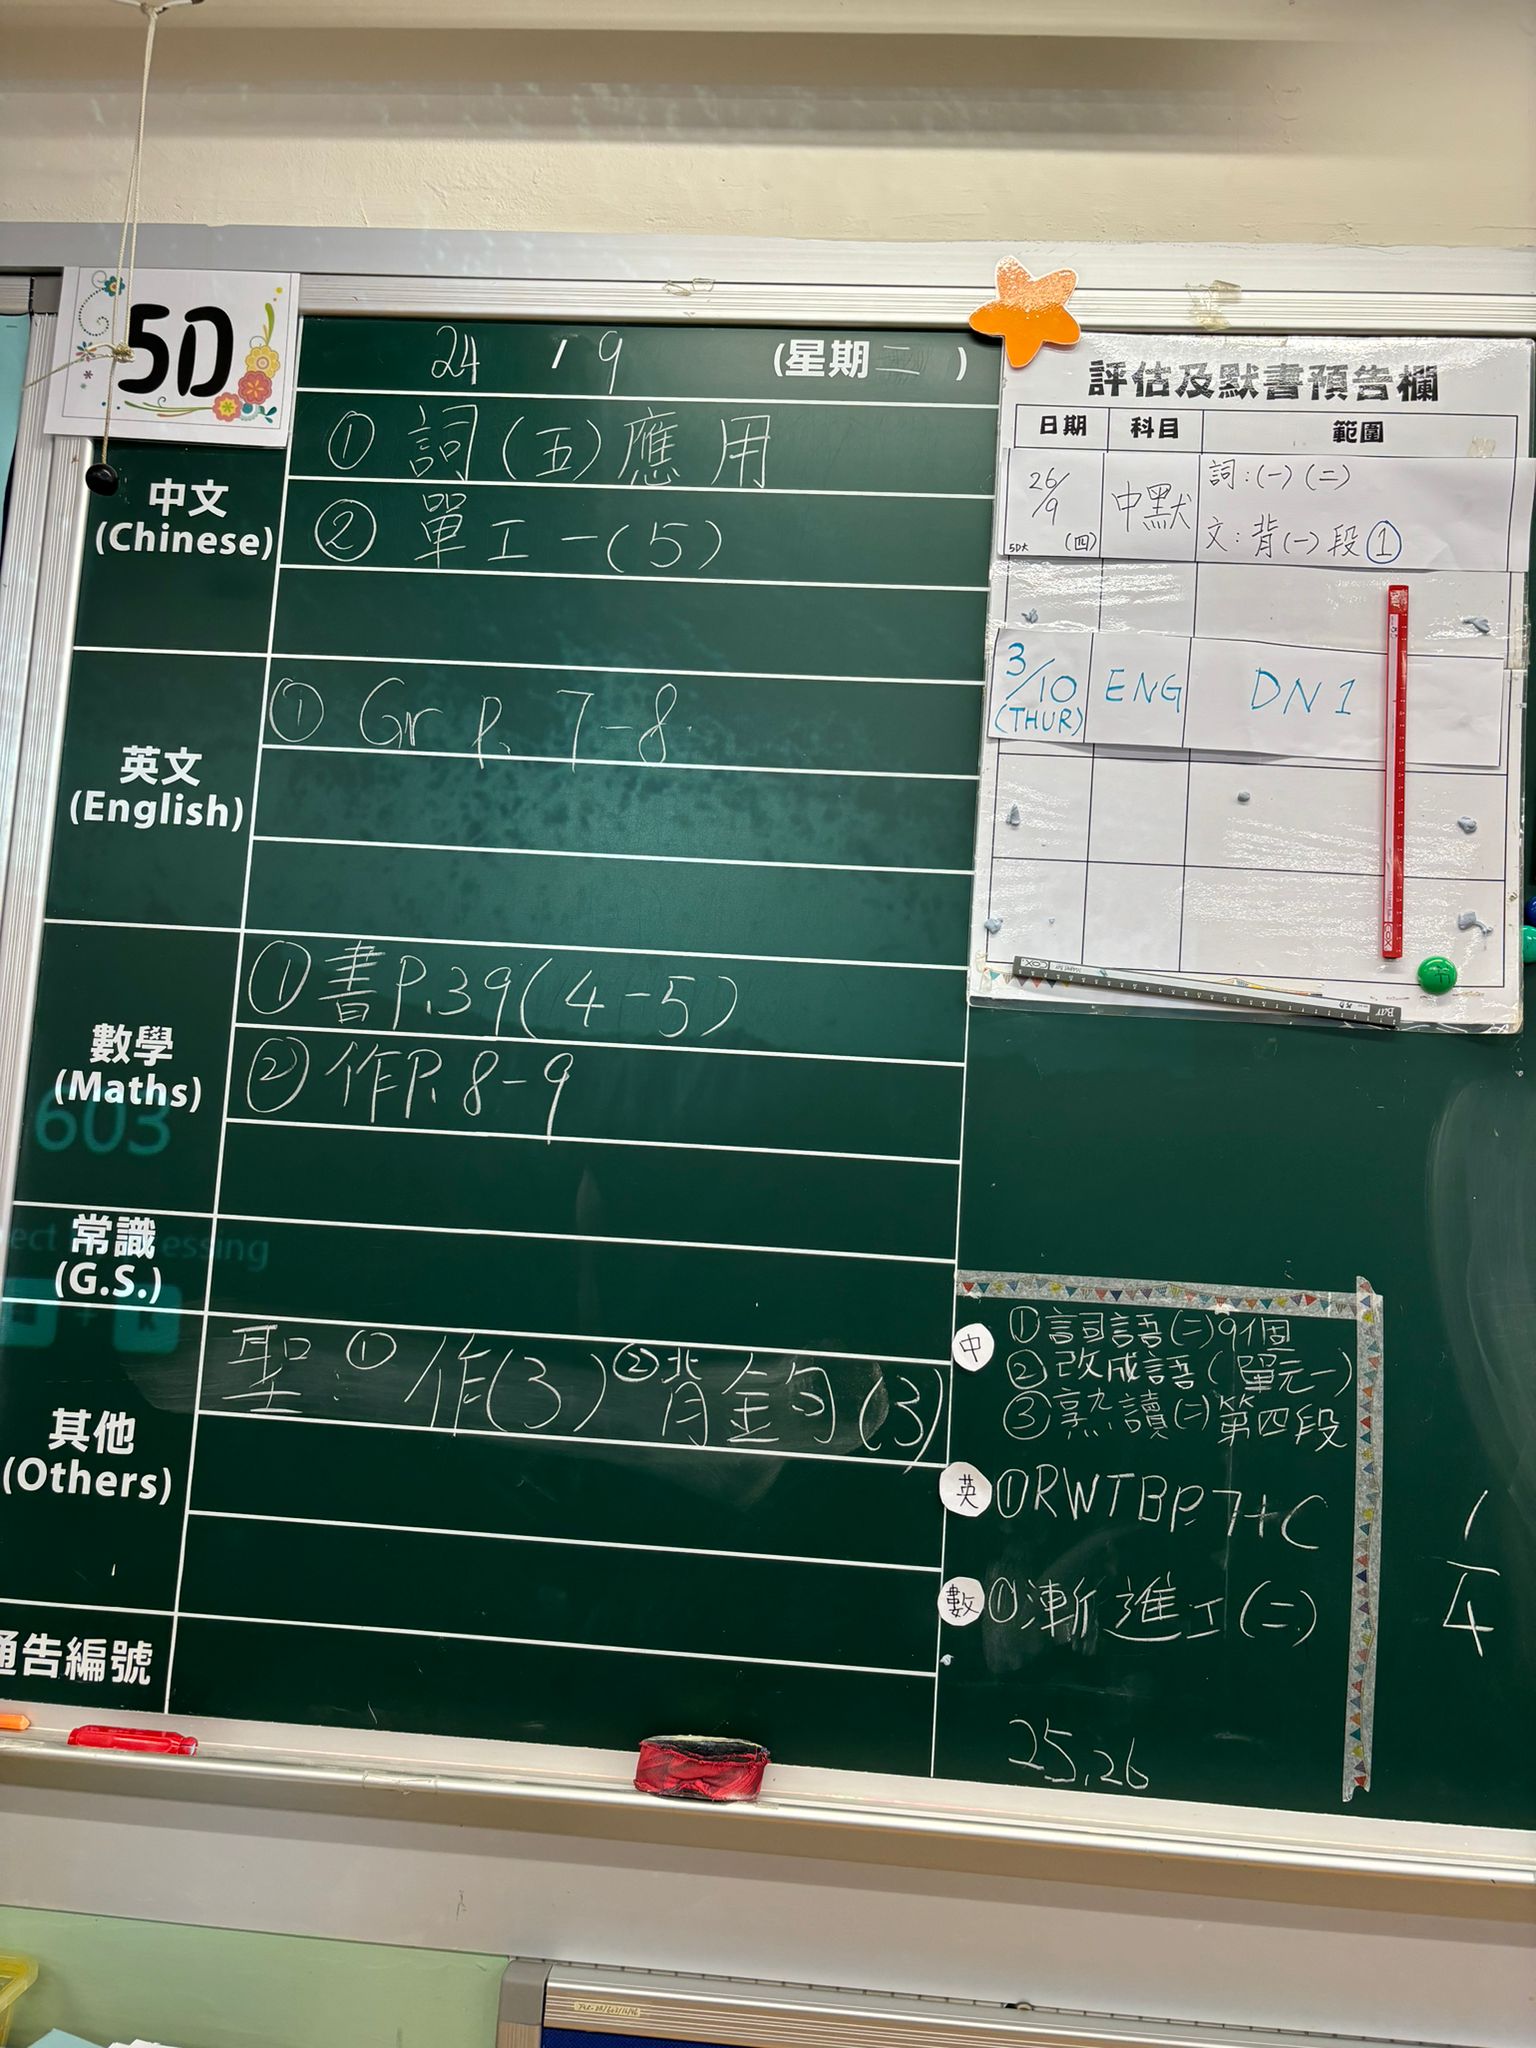 5D
24 / 9 (星期二)
中文
(Chinese)
① 詞(五)應用
② 單工一(5)
英文
(English)
① Gr P. 7-8
數學
(Maths)
① 書P.39(4-5)
② 作P.8-9
603
常識
(G.S.)
essing
其他
(Others)
聖:①作(3)②背金句(3)
通告編號
評估及默書預告欄
日期 科目 範圍
26/9 (四) 中默 詞:(一)(二)
文:背(一)段①
3/10 (THUR) ENG DN 1
中 ①詞語(二)9個
②改成語(單元一)
③熟讀(二)第四段
英 ①RWTBP.7+C
數 ①漸進工(二)
25,26
1/4